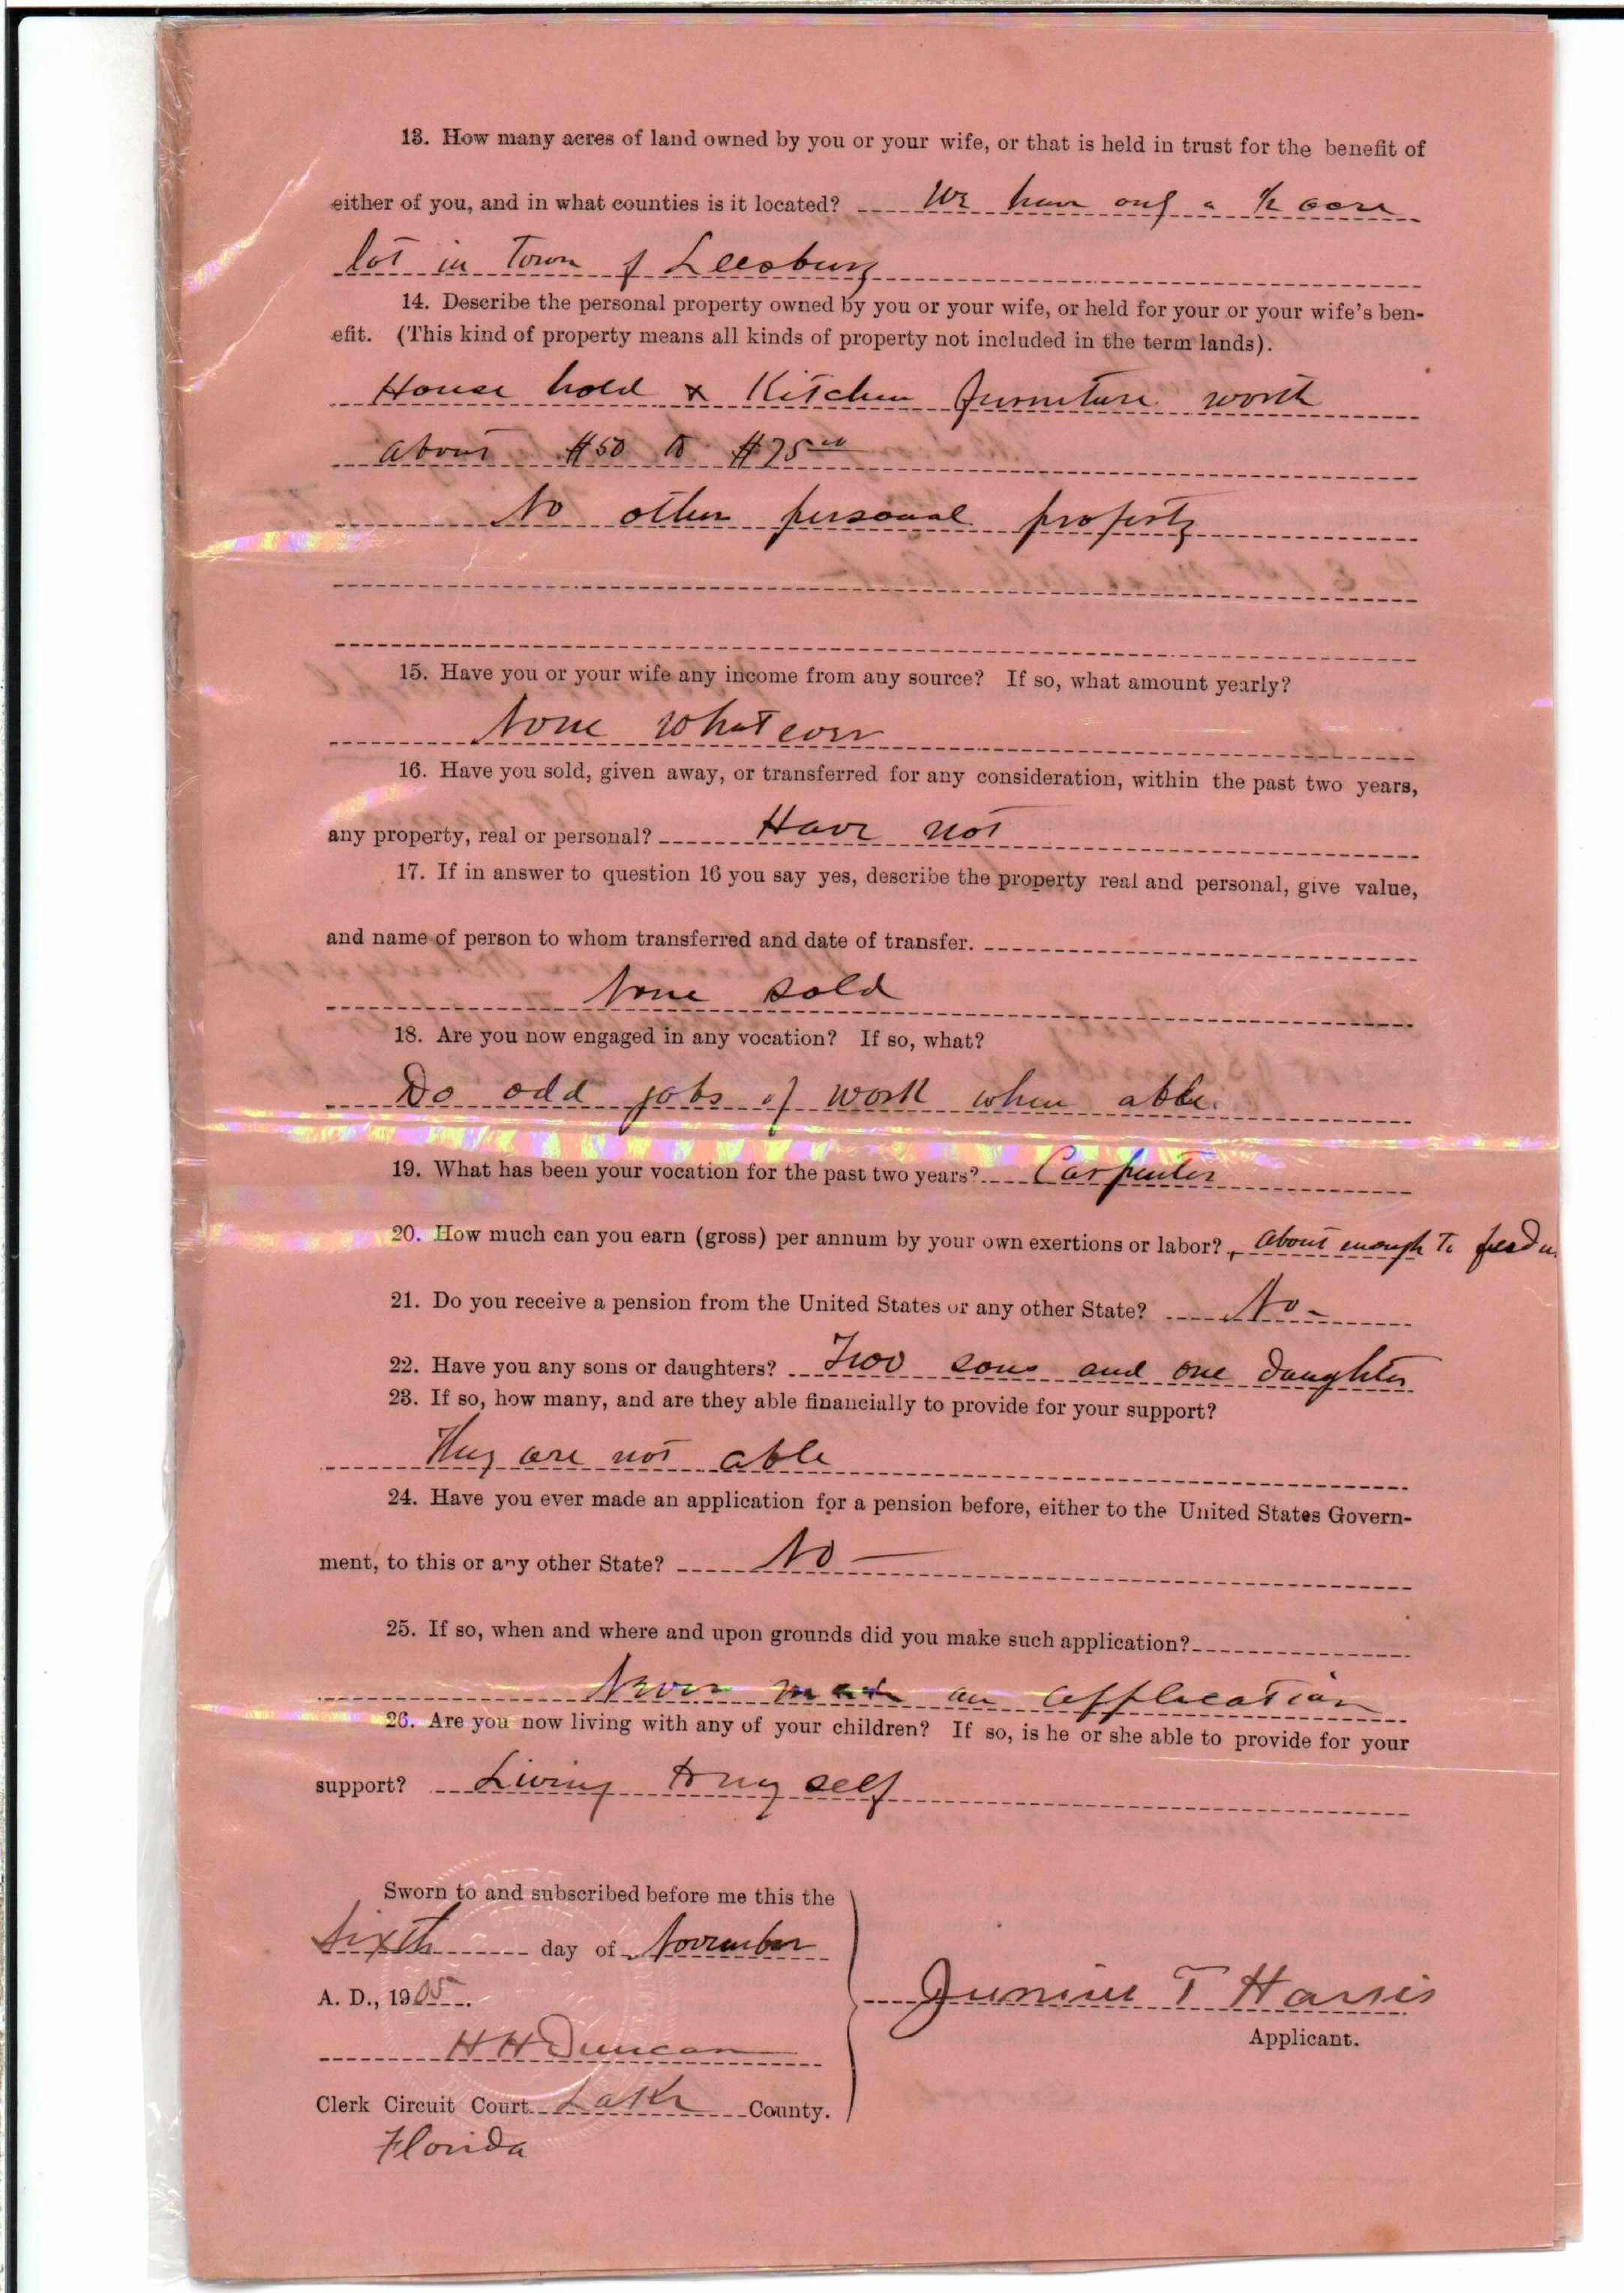 13. How many acres of land owned by you or your wife, or that is held in trust for the benefit of
either of you, and in what counties is it located? We have only a ½ acre
lot in Town of Leesburg
14. Describe the personal property owned by you or your wife, or held for your or your wife's ben-
efit. (This kind of property means all kinds of property not included in the term lands).
House hold & Kitchen furniture worth
about $50 to $75⁰⁰
No other personal property
15. Have you or your wife any income from any source? If so, what amount yearly?
None whatever
16. Have you sold, given away, or transferred for any consideration, within the past two years,
any property, real or personal? Have not
17. If in answer to question 16 you say yes, describe the property real and personal, give value,
and name of person to whom transferred and date of transfer.
None sold
18. Are you now engaged in any vocation? If so, what?
Do odd jobs of work when able.
19. What has been your vocation for the past two years? Carpenter
20. How much can you earn (gross) per annum by your own exertions or labor? about enough to feed
21. Do you receive a pension from the United States or any other State? No -
22. Have you any sons or daughters? Two sons and one daughter
23. If so, how many, and are they able financially to provide for your support?
They are not able
24. Have you ever made an application for a pension before, either to the United States Govern-
ment, to this or any other State? No —
25. If so, when and where and upon grounds did you make such application?
Never made an application
26. Are you now living with any of your children? If so, is he or she able to provide for your
support? Living to my self
Sworn to and subscribed before me this the
Sixth day of November
A. D., 1905.
H H Duncan
Clerk Circuit Court Lake County.
Florida
Junius T Harris
Applicant.